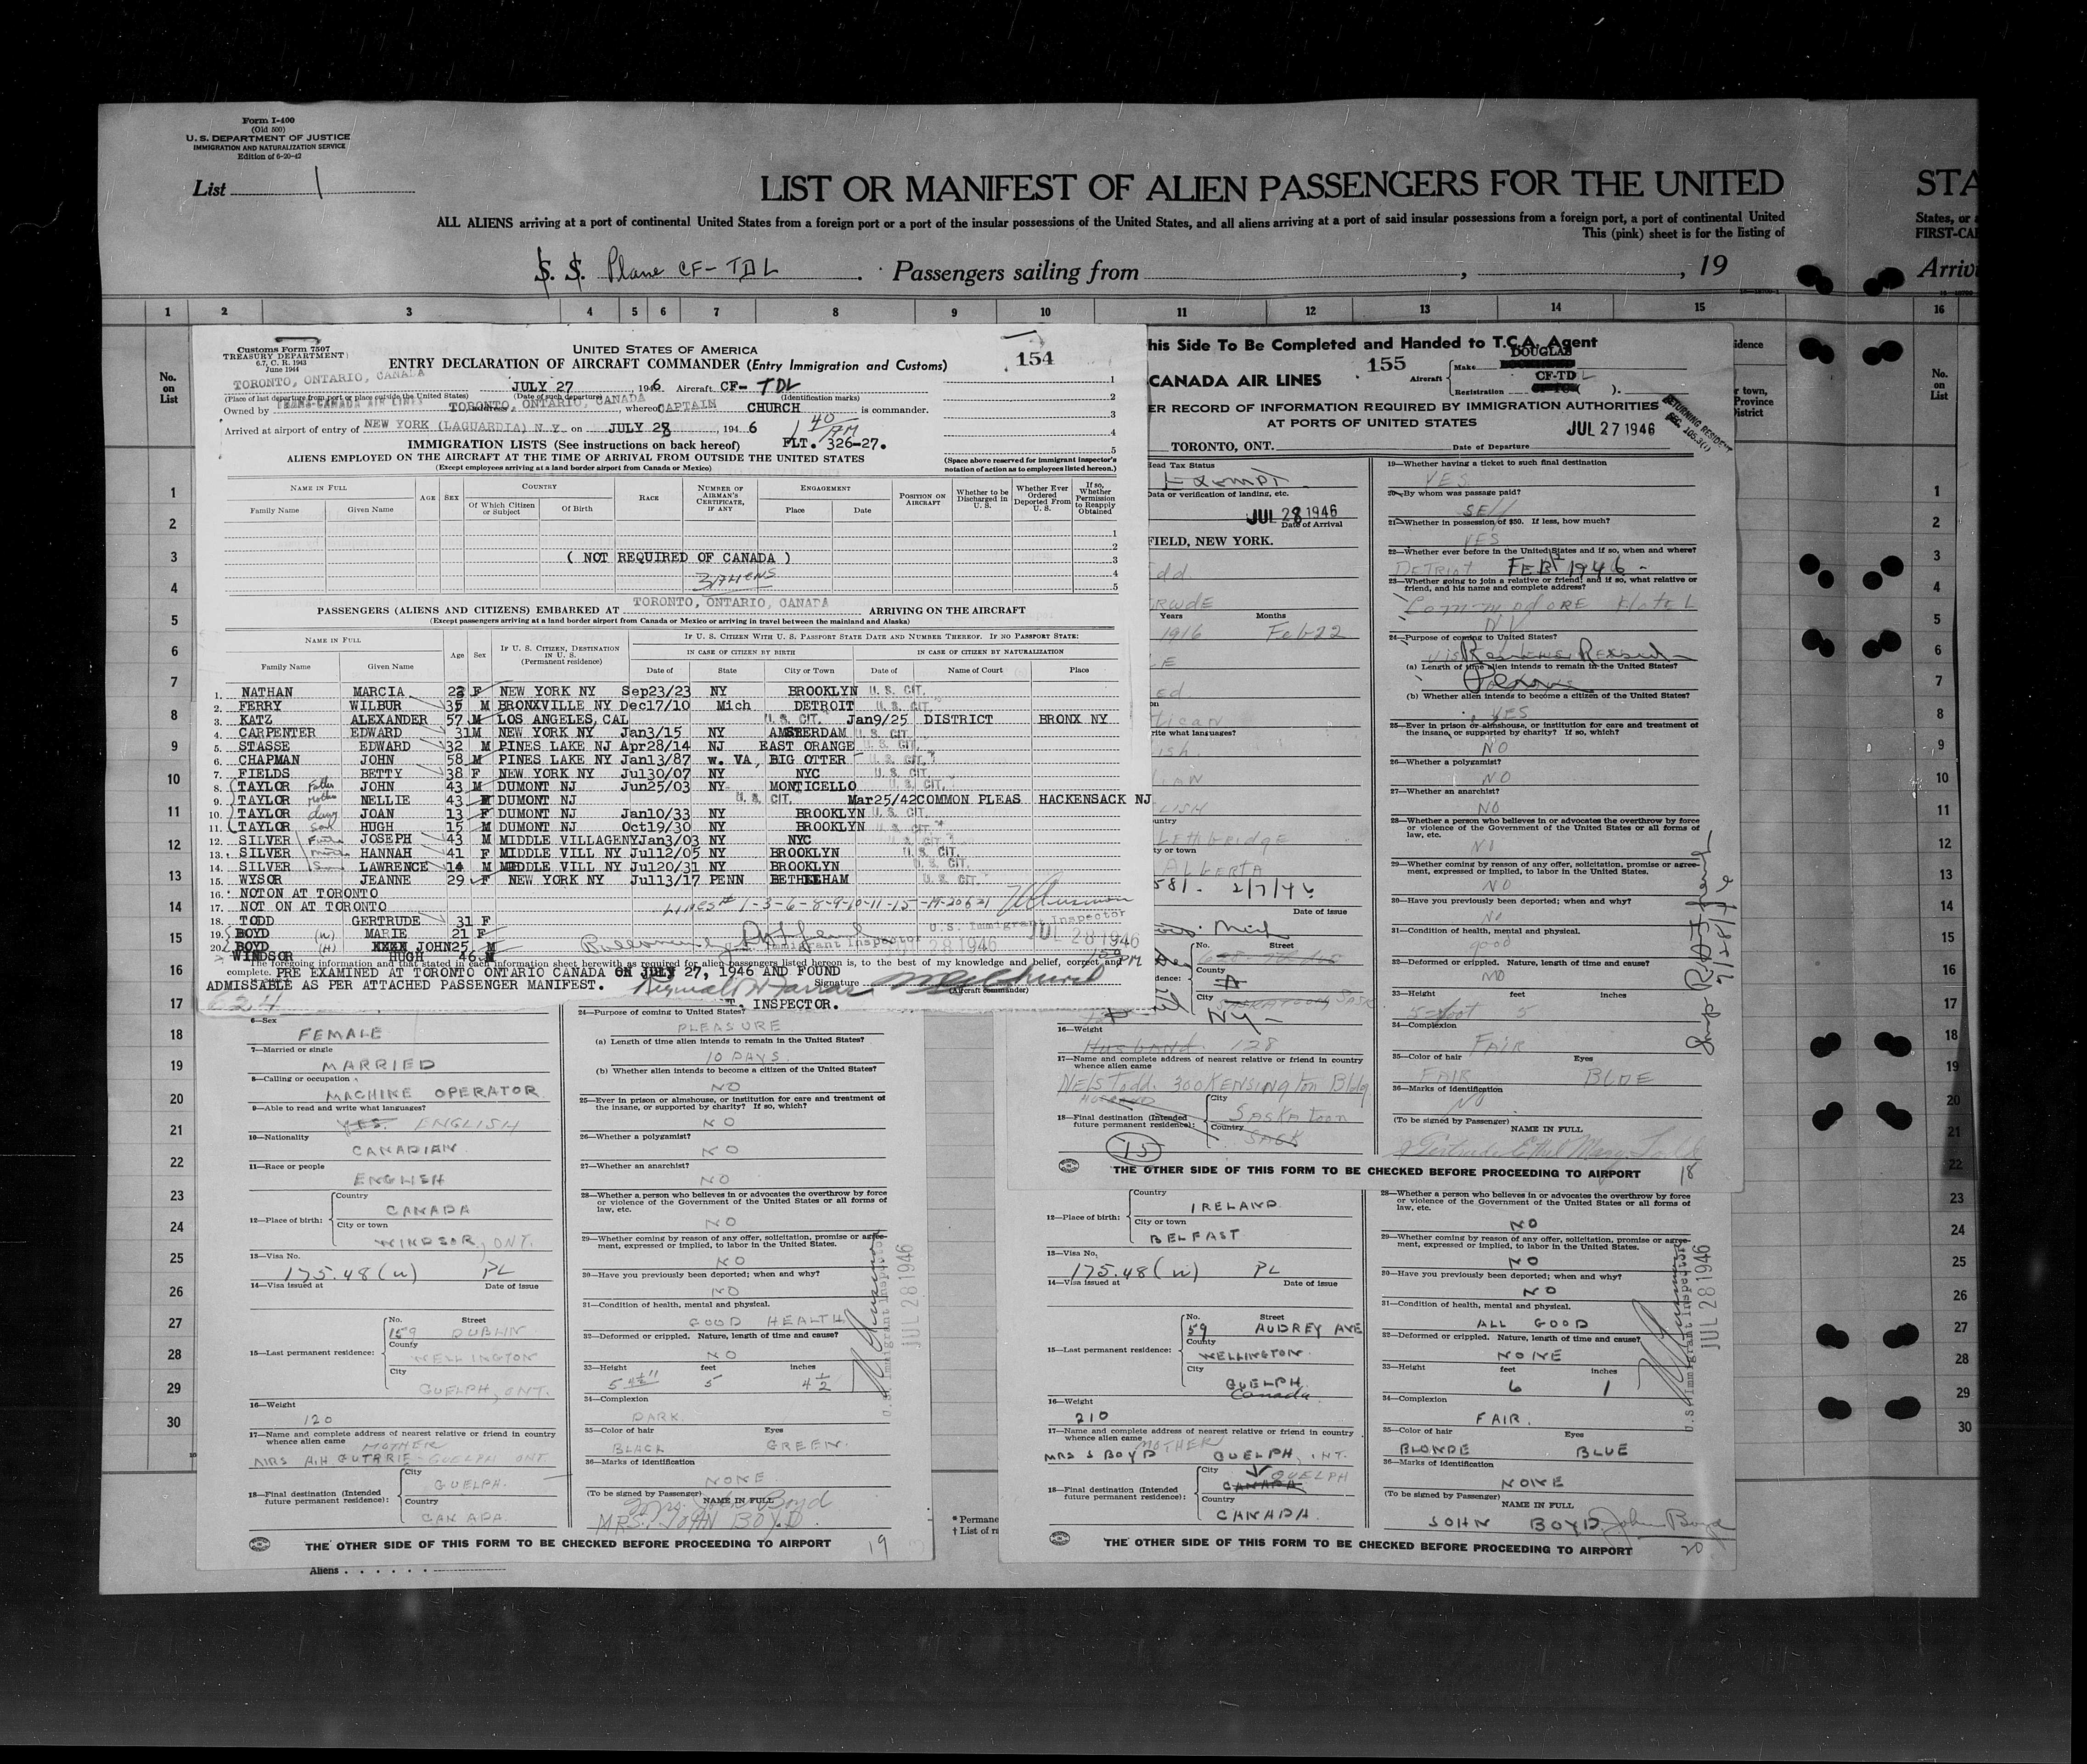 Form I-400
(Old 500)
U. S. DEPARTMENT OF JUSTICE
IMMIGRATION AND NATURALIZATION SERVICE
Edition of 6-20-42
List 1
LIST OR MANIFEST OF ALIEN PASSENGERS FOR THE UNITED
STA
ALL ALIENS arriving at a port of continental United States from a foreign port or a port of the insular possessions of the United States, and all aliens arriving at a port of said insular possessions from a foreign port, a port of continental United
States, or a
This (pink) sheet is for the listing of
FIRST-CA
S. S. Plane CF-TDL Passengers sailing from , , 19
Arriv
1 2 3 4 5 6 7 8 9 10 11 12 13 14 15 16
No. on List
Customs Form 7507
TREASURY DEPARTMENT
6.7, C. R. 1943
June 1944
UNITED STATES OF AMERICA
ENTRY DECLARATION OF AIRCRAFT COMMANDER (Entry Immigration and Customs)
154
TORONTO, ONTARIO, CANADA JULY 27, 1946 Aircraft CF-TDL
(Place of last departure from port or place outside the United States) (Date of such departure) (Identification marks)
Owned by TRANS-CANADA AIR LINES address, TORONTO, ONTARIO, CANADA whereof CAPTAIN CHURCH is commander.
Arrived at airport of entry of NEW YORK (LAGUARDIA) N.Y. on JULY 28, 1946
1 40 AM
IMMIGRATION LISTS (See instructions on back hereof) FLT. 326-27.
ALIENS EMPLOYED ON THE AIRCRAFT AT THE TIME OF ARRIVAL FROM OUTSIDE THE UNITED STATES
(Except employees arriving at a land border airport from Canada or Mexico)
(Space above reserved for immigrant inspector's notation of action as to employees listed hereon.)
NAME IN FULL AGE SEX COUNTRY RACE NUMBER OF AIRMAN'S CERTIFICATE, IF ANY ENGAGEMENT POSITION ON AIRCRAFT Whether to be Discharged in U. S. Whether Ever Ordered Deported From U. S. If so, Whether Permission to Reapply Obtained
Family Name Given Name Of Which Citizen or Subject Of Birth Place Date
( NOT REQUIRED OF CANADA )
3 ALIENS
PASSENGERS (ALIENS AND CITIZENS) EMBARKED AT TORONTO, ONTARIO, CANADA ARRIVING ON THE AIRCRAFT
(Except passengers arriving at a land border airport from Canada or Mexico or arriving in travel between the mainland and Alaska)
NAME IN FULL Age Sex IF U. S. CITIZEN, DESTINATION IN U. S. (Permanent residence) IF U. S. CITIZEN WITH U. S. PASSPORT STATE DATE AND NUMBER THEREOF. IF NO PASSPORT STATE:
IN CASE OF CITIZEN BY BIRTH IN CASE OF CITIZEN BY NATURALIZATION
Family Name Given Name Date of State City or Town Date of Name of Court Place
1. NATHAN MARCIA 22 F NEW YORK NY Sep23/23 NY BROOKLYN U. S. CIT.
2. FERRY WILBUR 35 M BRONXVILLE NY Dec17/10 Mich DETROIT U. S. CIT.
3. KATZ ALEXANDER 57 M LOS ANGELES, CAL U. S. CIT. Jan9/25 DISTRICT BRONX NY
4. CARPENTER EDWARD 31 M NEW YORK NY Jan3/15 NY AMSTERDAM U. S. CIT.
5. STASSE EDWARD 32 M PINES LAKE NJ Apr28/14 NJ EAST ORANGE U. S. CIT.
6. CHAPMAN JOHN 58 M PINES LAKE NY Jan13/87 w. VA, BIG OTTER U. S. CIT.
7. FIELDS BETTY 38 F NEW YORK NY Jul30/07 NY NYC U. S. CIT.
8. TAYLOR Father JOHN 43 M DUMONT NJ Jun25/03 NY MONTICELLO U. S. CIT.
9. TAYLOR Mother NELLIE 43 F DUMONT NJ U. S. CIT. Mar25/42 COMMON PLEAS HACKENSACK NJ
10. TAYLOR daug JOAN 13 F DUMONT NJ Jan10/33 NY BROOKLYN U. S. CIT.
11. TAYLOR son HUGH 15 M DUMONT NJ Oct19/30 NY BROOKLYN U. S. CIT.
12. SILVER JOSEPH 43 M MIDDLE VILLAGENY Jan3/03 NY NYC U. S. CIT.
13. SILVER HANNAH 41 F MIDDLE VILL NY Jul12/05 NY BROOKLYN U. S. CIT.
14. SILVER LAWRENCE 14 M MIDDLE VILL NY Jul20/31 NY BROOKLYN U. S. CIT.
15. WYSOR JEANNE 29 F NEW YORK NY Jul13/17 PENN BETHLEHAM U. S. CIT.
16. NOTON AT TORONTO
17. NOT ON AT TORONTO
Lines # 1-3-6-8-9-10-11-15-19-20 & 21
18. TODD GERTRUDE 31 F
19. BOYD (W) MARIE 21 F
U. S. Immigrant Inspector JUL 28 1946
20. BOYD (H) JOHN 25 M
Immigrant Inspector 28 1946
WINDSOR HUGH 46 M
The foregoing information and that stated in each information sheet herewith as required for alien passengers listed hereon is, to the best of my knowledge and belief, correct and complete.
PRE EXAMINED AT TORONTO ONTARIO CANADA ON JULY 27, 1946 AND FOUND
ADMISSABLE AS PER ATTACHED PASSENGER MANIFEST. Signature
(Aircraft commander)
624
INSPECTOR.
his Side To Be Completed and Handed to T.C.A. Agent
CANADA AIR LINES 155 Aircraft Make DOUGLAS
Registration CF-TDL
ER RECORD OF INFORMATION REQUIRED BY IMMIGRATION AUTHORITIES
AT PORTS OF UNITED STATES
RETURNING RESIDENT
TORONTO, ONT. JUL 27 1946
Date of Departure
Head Tax Status
Exempt
Data or verification of landing, etc.
JUL 28 1946
Date of Arrival
FIELD, NEW YORK.
odd
RUDE
Years Months
1916 Feb 22
ethbridge
ALBERTA
581. 2/7/46
Date of issue
No. Street
County
City SASKATOON SASK
NY-
16—Weight
Husband. 128
17—Name and complete address of nearest relative or friend in country whence alien came
Nels Todd. 300 Kensington Bldg
Husband
18—Final destination (Intended future permanent residence): City Saskatoon
Country SASK
15
19—Whether having a ticket to such final destination
YES
20—By whom was passage paid?
Self
21—Whether in possession of $50. If less, how much?
YES
22—Whether ever before in the United States and if so, when and where?
DETRIOT FEB 1946
23—Whether going to join a relative or friend; and if so, what relative or friend, and his name and complete address?
Commodore Hotel
N.Y
24—Purpose of coming to United States?
(a) Length of time alien intends to remain in the United States?
(b) Whether alien intends to become a citizen of the United States?
YES
25—Ever in prison or almshouse, or institution for care and treatment of the insane, or supported by charity? If so, which?
NO
26—Whether a polygamist?
NO
27—Whether an anarchist?
NO
28—Whether a person who believes in or advocates the overthrow by force or violence of the Government of the United States or all forms of law, etc.
NO
29—Whether coming by reason of any offer, solicitation, promise or agreement, expressed or implied, to labor in the United States.
NO
30—Have you previously been deported; when and why?
No
31—Condition of health, mental and physical.
good
32—Deformed or crippled. Nature, length of time and cause?
NO
33—Height feet inches
5 foot 5
34—Complexion
FAIR
35—Color of hair Eyes
FAIR BLUE
36—Marks of identification
NO
(To be signed by Passenger) NAME IN FULL
Gertrude Ethel Mary Todd
THE OTHER SIDE OF THIS FORM TO BE CHECKED BEFORE PROCEEDING TO AIRPORT
18
6—Sex
FEMALE
7—Married or single
MARRIED
8—Calling or occupation
MACHINE OPERATOR
9—Able to read and write what languages?
YES. ENGLISH
10—Nationality
CANADIAN
11—Race or people
ENGLISH
12—Place of birth: Country
CANADA
City or town
WINDSOR, ONT.
13—Visa No.
175.48(u) PL
14—Visa issued at Date of issue
15—Last permanent residence: No. Street
159 DUBLIN
County
WELLINGTON
City
GUELPH, ONT.
16—Weight
120
17—Name and complete address of nearest relative or friend in country whence alien came
MOTHER
MRS A.H GUTHRIE GUELPH ONT.
18—Final destination (Intended future permanent residence): City
GUELPH.
Country
CANADA.
24—Purpose of coming to United States?
PLEASURE
(a) Length of time alien intends to remain in the United States?
10 DAYS.
(b) Whether alien intends to become a citizen of the United States?
NO
25—Ever in prison or almshouse, or institution for care and treatment of the insane, or supported by charity? If so, which?
NO
26—Whether a polygamist?
NO
27—Whether an anarchist?
NO
28—Whether a person who believes in or advocates the overthrow by force or violence of the Government of the United States or all forms of law, etc.
NO
29—Whether coming by reason of any offer, solicitation, promise or agreement, expressed or implied, to labor in the United States.
NO
30—Have you previously been deported; when and why?
NO
31—Condition of health, mental and physical.
GOOD HEALTH
32—Deformed or crippled. Nature, length of time and cause?
NO
33—Height feet inches
5 4½" 5 4½
34—Complexion
DARK.
35—Color of hair Eyes
BLACK GREEN.
36—Marks of identification
NONE
(To be signed by Passenger) NAME IN FULL
Mrs. John Boyd
MRS. JOHN BOYD.
U.S. Immigrant Inspector JUL 28 1946
THE OTHER SIDE OF THIS FORM TO BE CHECKED BEFORE PROCEEDING TO AIRPORT
19
12—Place of birth: Country
IRELAND
City or town
BELFAST
13—Visa No.
175.48(u) PL
14—Visa issued at Date of issue
15—Last permanent residence: No. Street
59 AUDREY AVE
County
WELLINGTON
City
GUELPH
Canada
16—Weight
210
17—Name and complete address of nearest relative or friend in country whence alien came
MOTHER
MRS S BOYD GUELPH, ONT.
18—Final destination (Intended future permanent residence): City
CANADA GUELPH
Country
CANADA.
28—Whether a person who believes in or advocates the overthrow by force or violence of the Government of the United States or all forms of law, etc.
NO
29—Whether coming by reason of any offer, solicitation, promise or agreement, expressed or implied, to labor in the United States.
NO
30—Have you previously been deported; when and why?
NO
31—Condition of health, mental and physical.
ALL GOOD
32—Deformed or crippled. Nature, length of time and cause?
NONE
33—Height feet inches
6 1
34—Complexion
FAIR.
35—Color of hair Eyes
BLONDE BLUE
36—Marks of identification
NONE
(To be signed by Passenger) NAME IN FULL
JOHN BOYD John Boyd
U.S. Immigrant Inspector JUL 28 1946
THE OTHER SIDE OF THIS FORM TO BE CHECKED BEFORE PROCEEDING TO AIRPORT
20
* Permane
† List of ra
Aliens